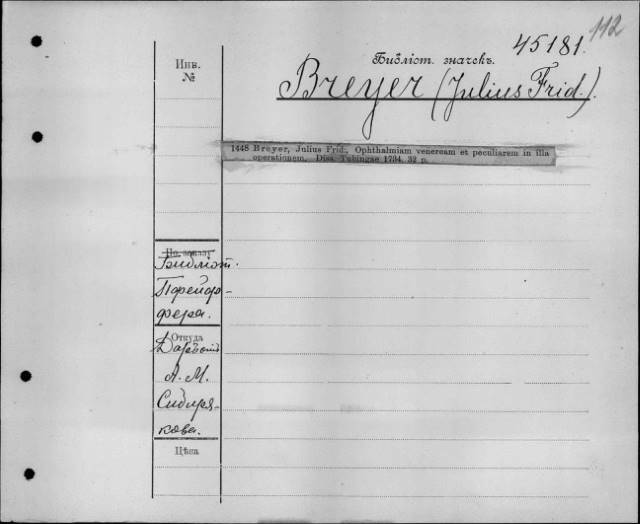 112
Библіот. значекъ. 45181.
Инв.
№
Breyer (Julius Frid.).
1448 Breyer, Julius Frid., Ophthalmiam veneream et peculiarem in illa
operationem. Diss. Tubingae 1734. 32 p.
По заказу
Библіот.
Пфейф-
фера.
Откуда
Даръ
А. М.
Сибиря-
кова.
Цѣна